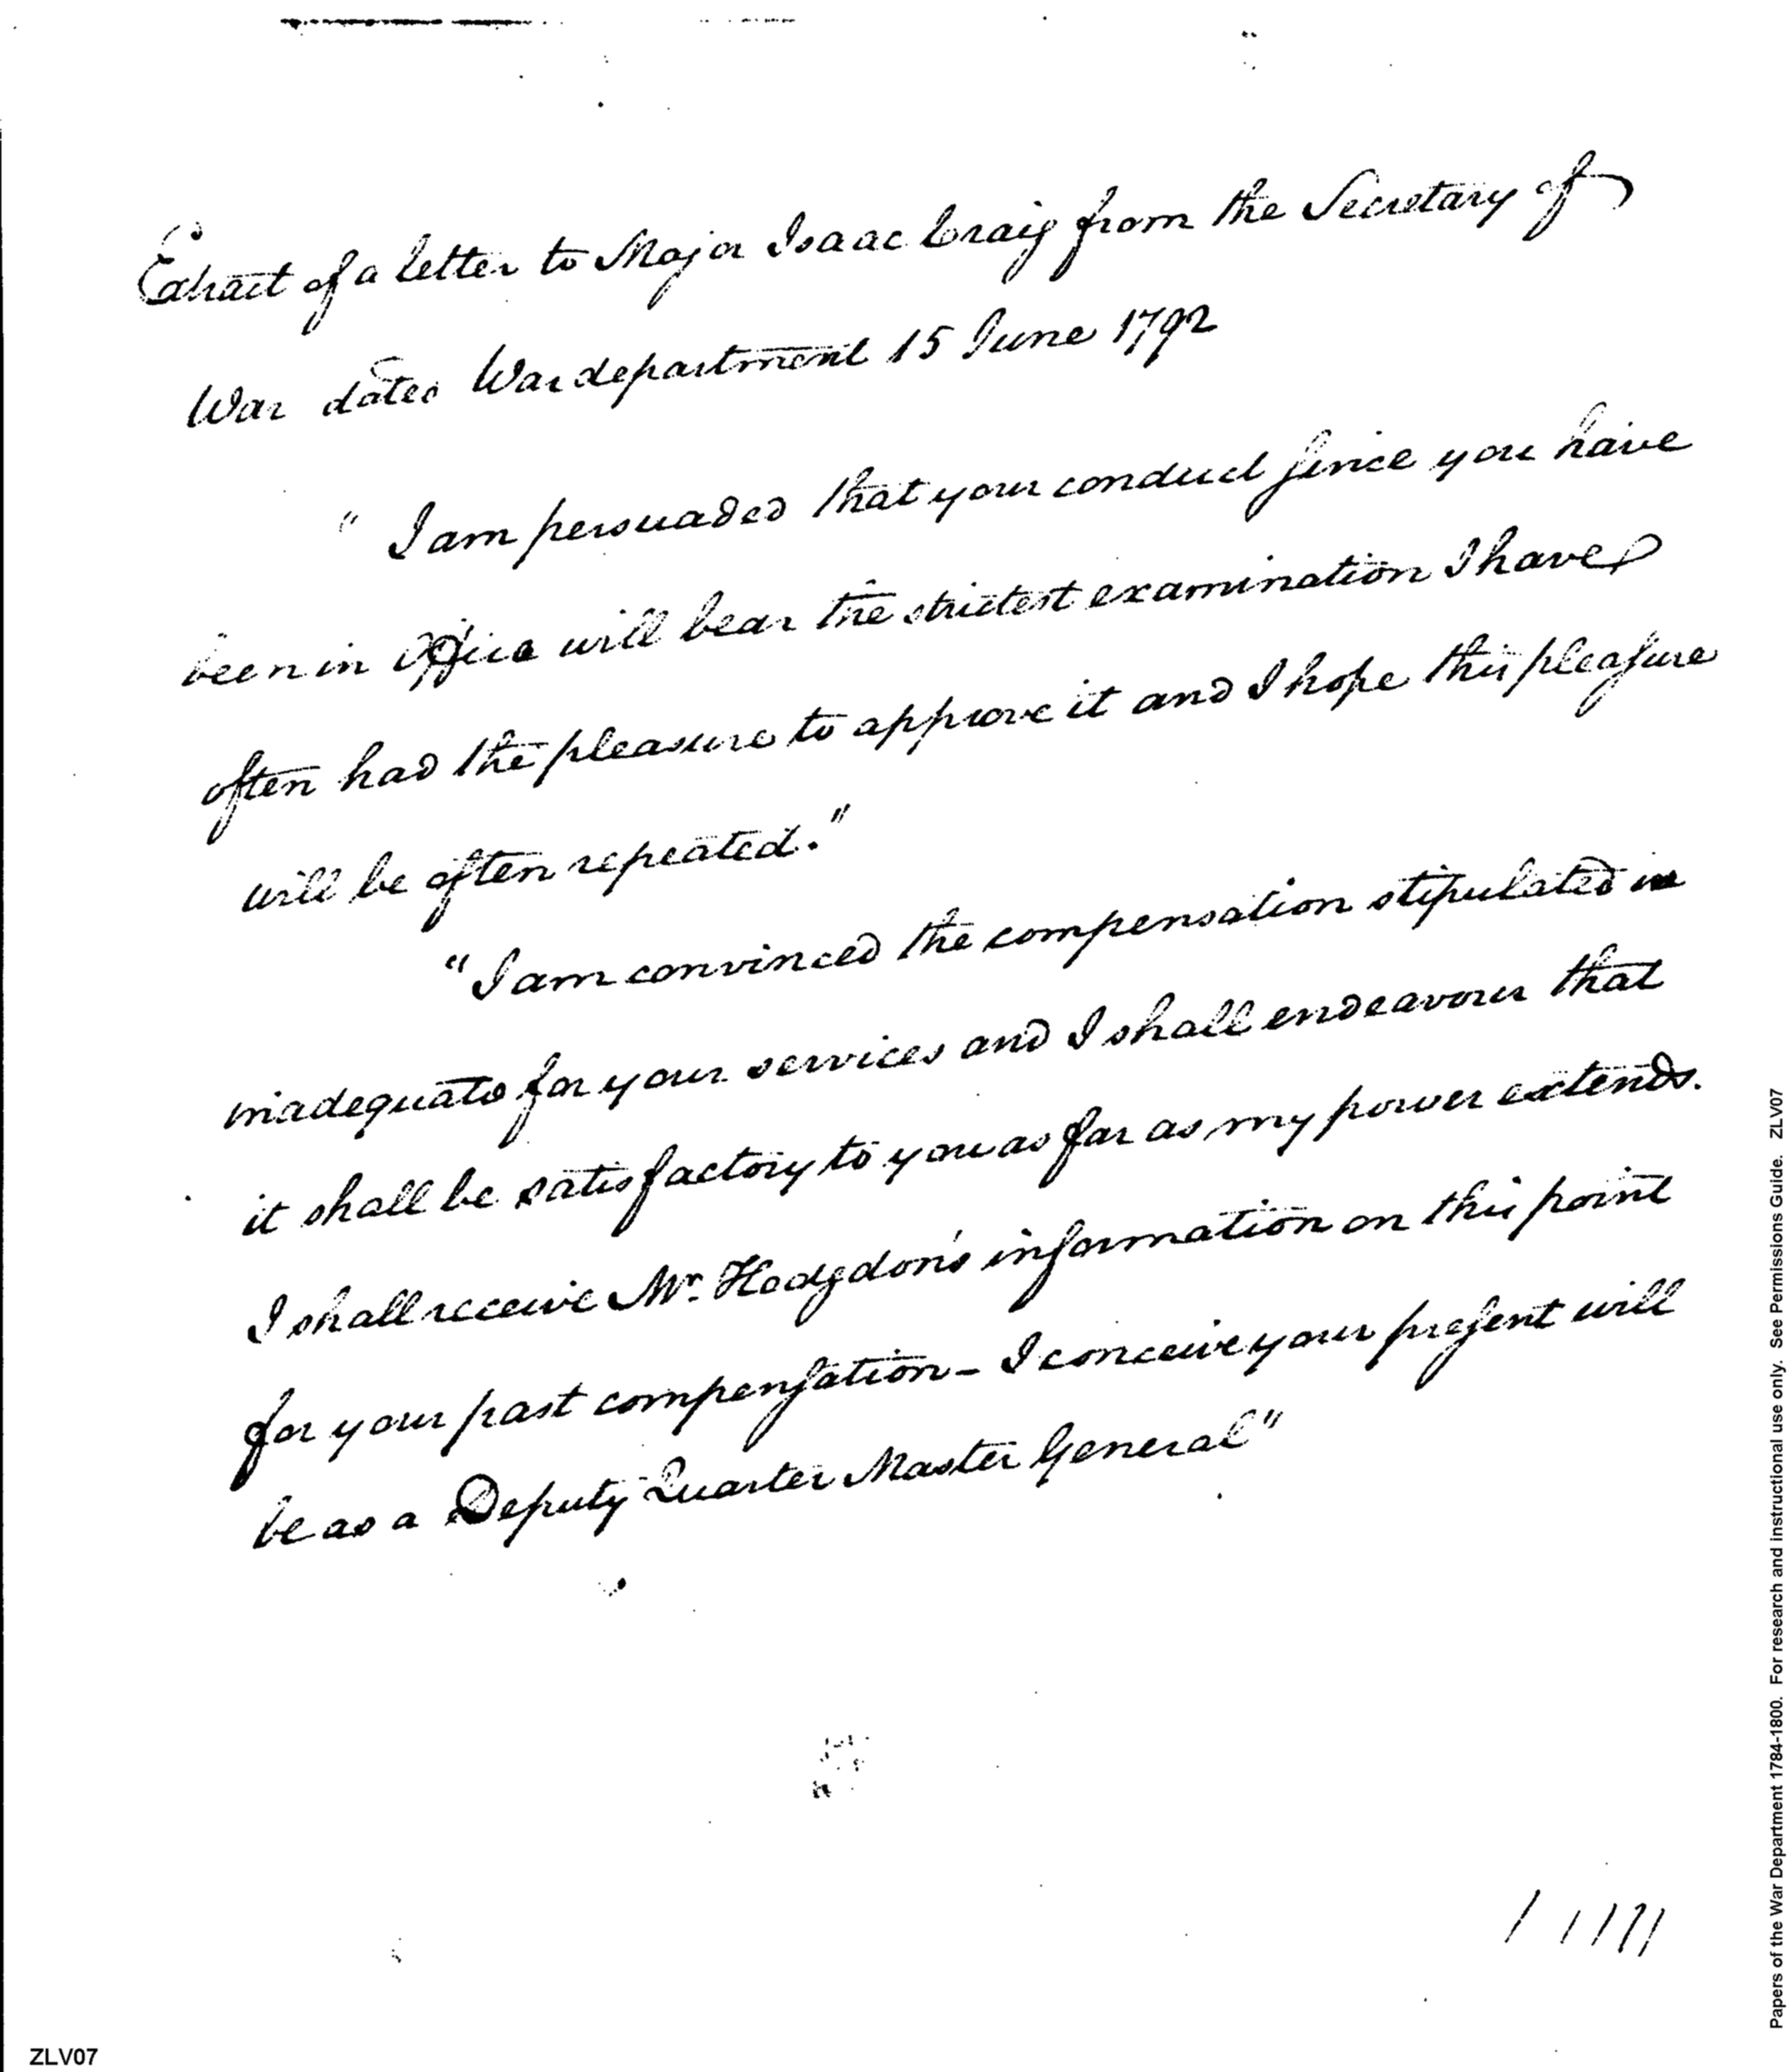 Extract of a letter to Major Isaac Craig from the Secretary of
War dated War department 15 June 1792
" I am persuaded that your conduct since you have
been in Office will bear the strictest examination I have
often had the pleasure to approve it and I hope this pleasure
will be often repeated."
"I am convinced the compensation stipulated is
inadequate for your services and I shall endeavour that
it shall be satisfactory to you as far as my power extends.
I shall receive Mr. Hodgdon's information on this point
for your past compensation - I conceive your present will
be as a Deputy Quarter Master General"
ZLV07
Papers of the War Department 1784-1800. For research and instructional use only. See Permissions Guide. ZLV07